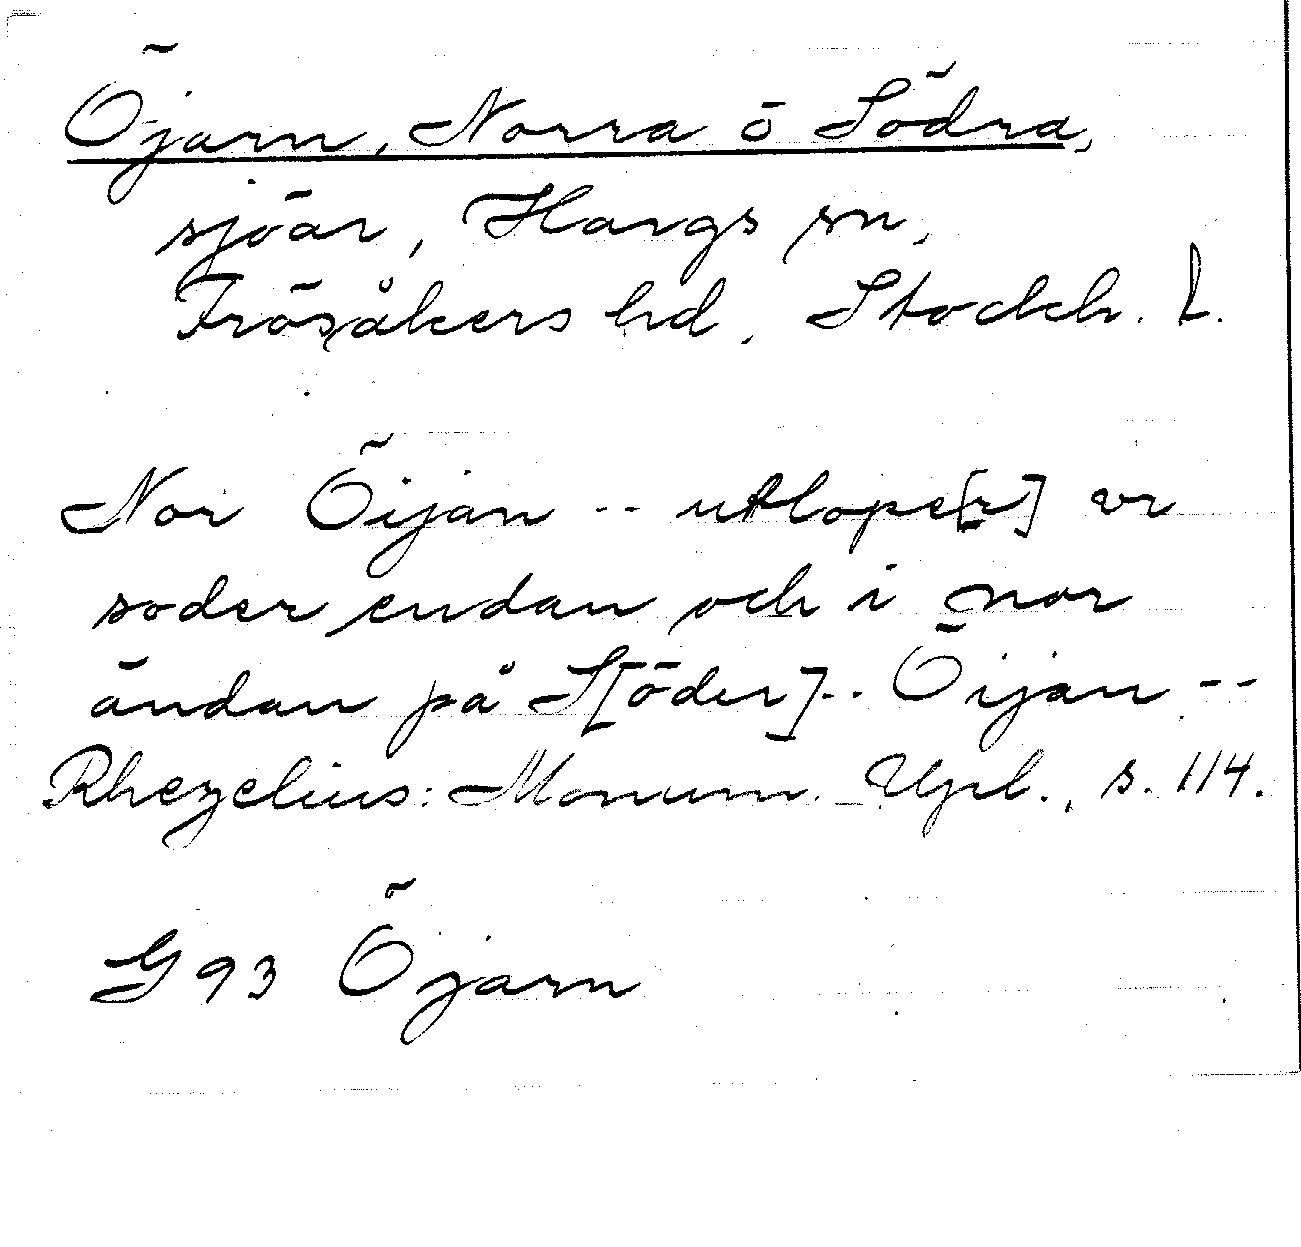 Öjarn, Norra o Södra,
sjöar, Hargs sn,
Frösåkers hd, Stockh. l.
Nor Öijan -- utlope[r] vr
soder endan och i nor
ändan på S[öder] -- Öijan --
Rhezelius: Monum. Upl., s. 114.
G 93 Öjarn